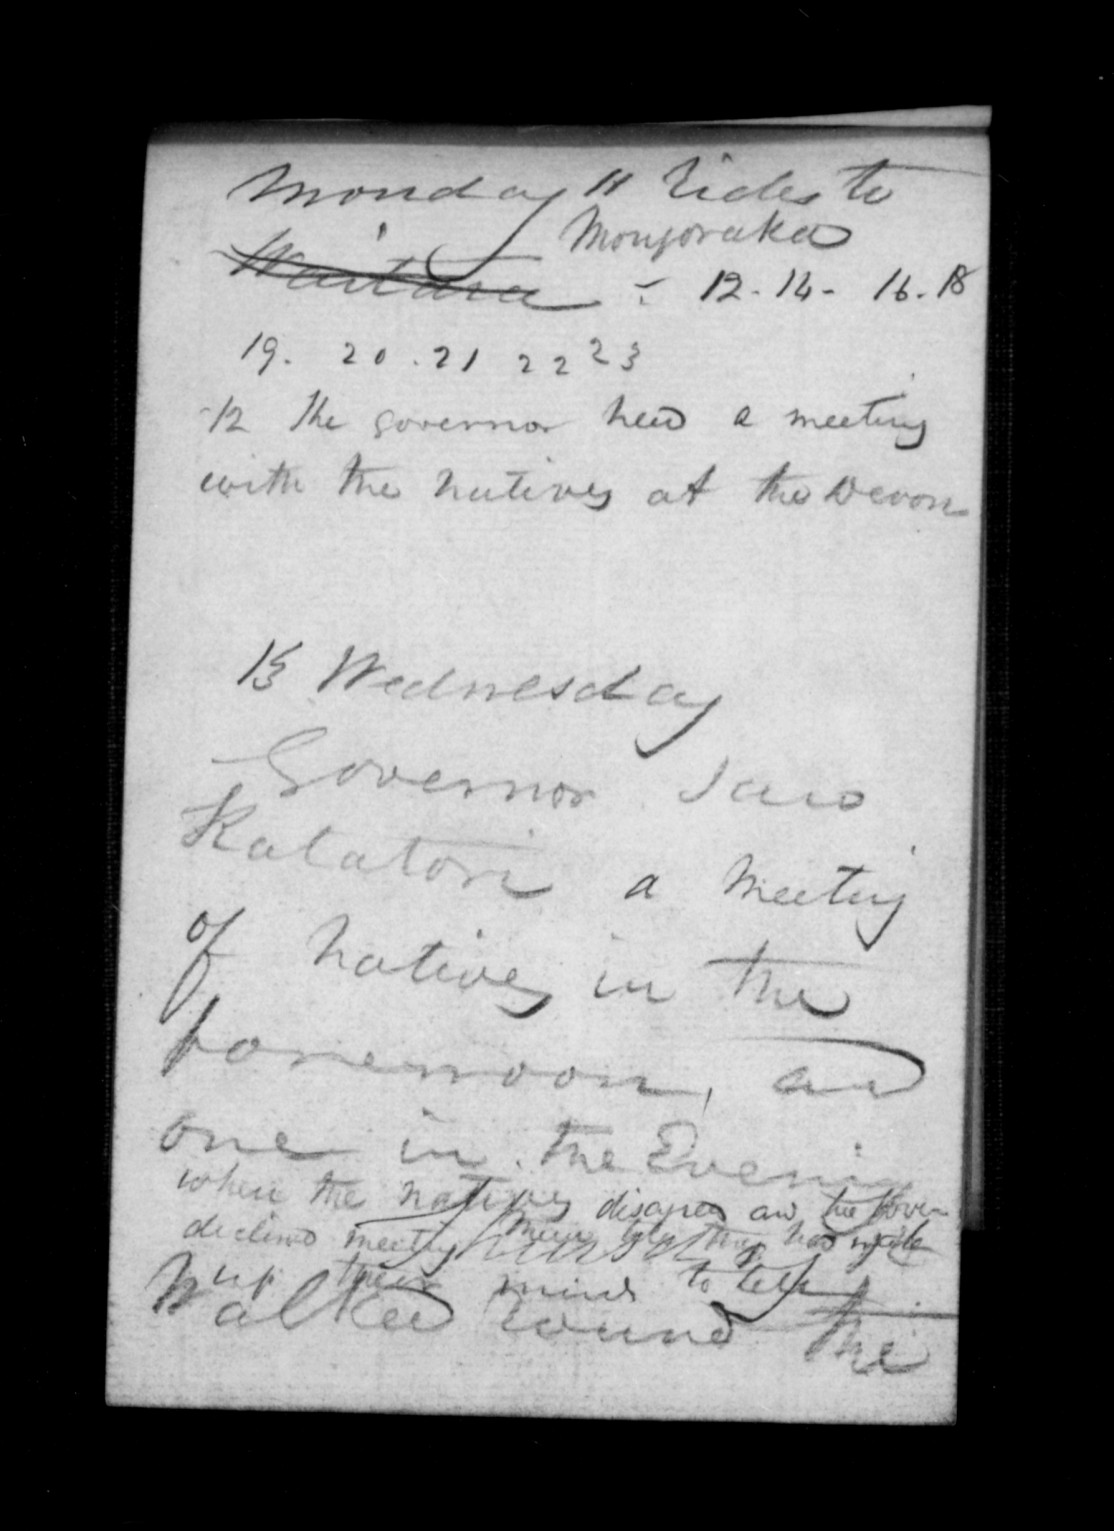 Monday 11 Rides to
Mongoraka
Waitara - 12. 14 - 16. 18
19. 20. 21 22 23
12 The Governor held a meeting
with the natives at the Devon
15 Wednesday
Governor saw
Katatori a meeting
of natives in the
forenoon, and
one in the Evening
when the natives disagreed and the Gover
declined meeting them they had made
up their minds to
Walked round the